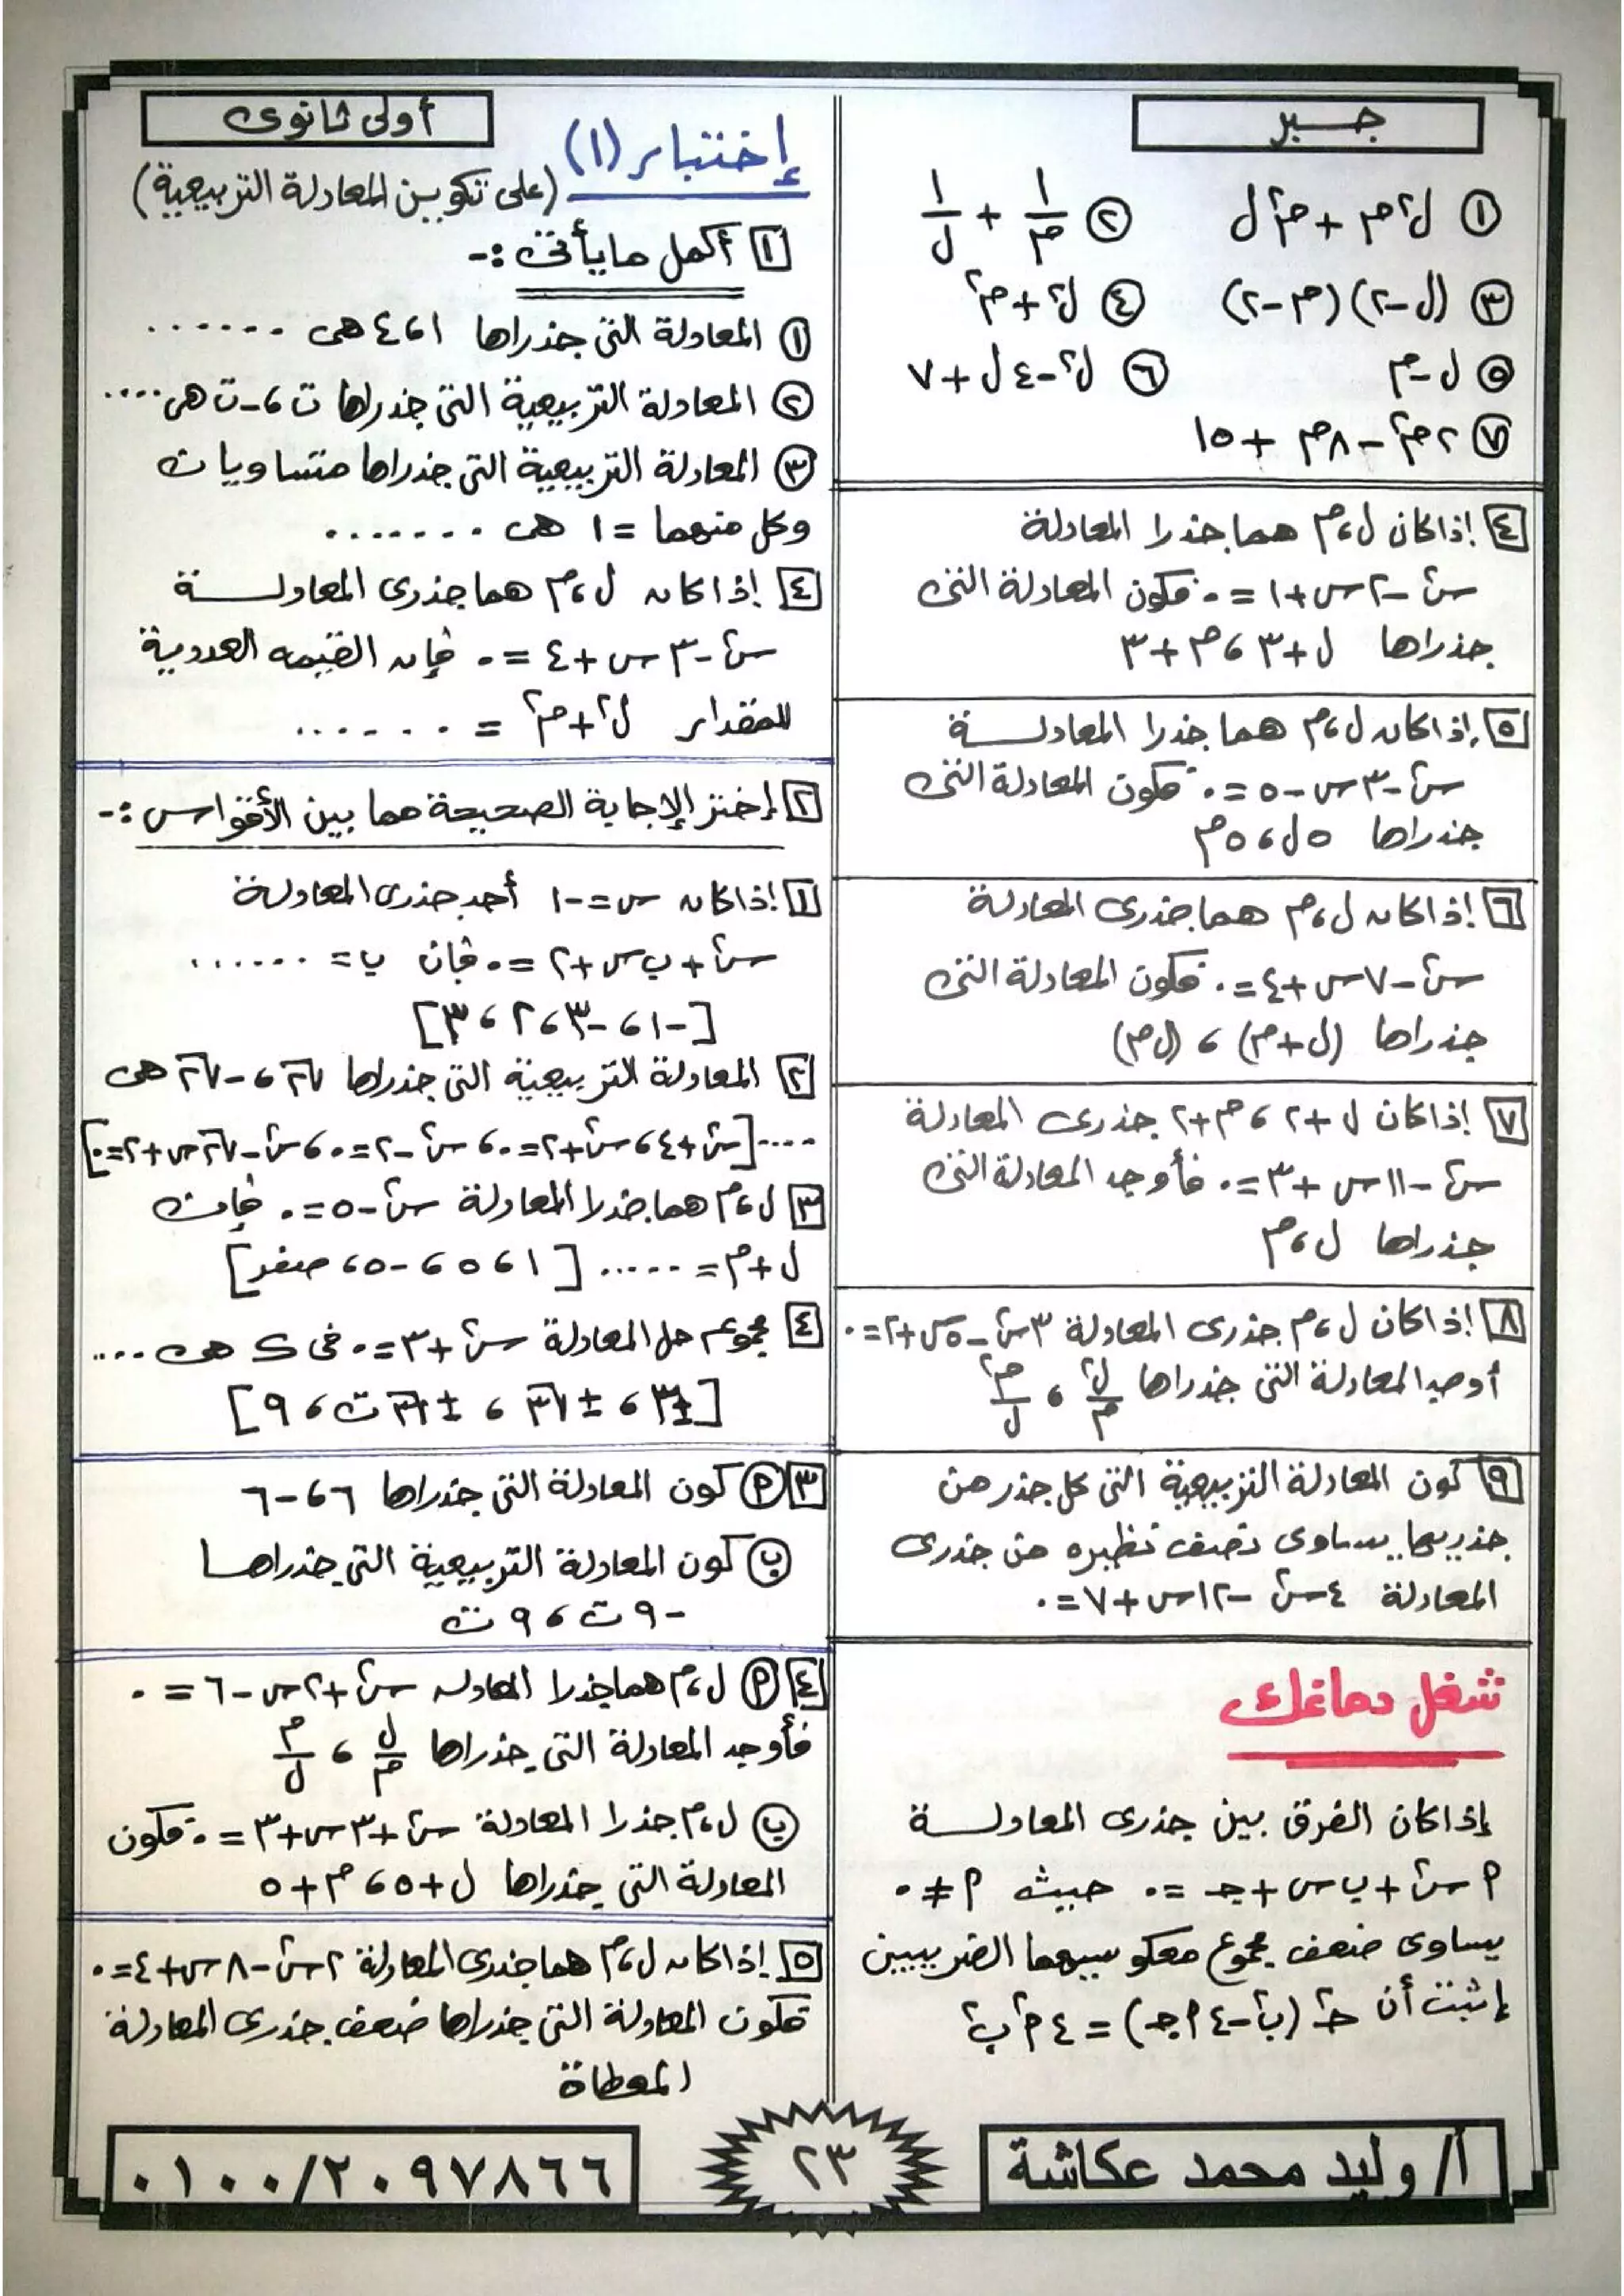 جبر
① ل٢م + م٢ل ② ١/م + ١/ل
③ (ل-٢)(م-٢) ④ ل٢ + م٢
⑤ ل-م ⑥ ل٢-٤ل+٧
⑦ ٢م٢-٨م+١٥
٤ إذا كان ل،م هما جذرا المعادلة
س٢-٢س+١=٠ فكون المعادلة التى
جذراها ل+٣، م+٣
٥ إذا كان ل،م هما جذرا المعادلة
س٢-٣س-٥=٠ فكون المعادلة التى
جذراها ٥ل، ٥م
٦ إذا كان ل،م هما جذرى المعادلة
س٢-٧س+٤=٠ فكون المعادلة التى
جذراها (ل+م)، (ل م)
٧ إذا كان ل+٢، م+٢ جذرى المعادلة
س٢-١١س+٣=٠ فأوجد المعادلة التى
جذراها ل،م
٨ إذا كان ل،م جذرى المعادلة ٣س٢-٥س+٢=٠
أوجد المعادلة التى جذراها ل٢/م، م٢/ل
٩ كون المعادلة التربيعية التى كل جذر من
جذريها يساوى نصف نظيره من جذرى
المعادلة ٤س٢-١٢س+٧=٠
شغل دماغك
إذا كان الفرق بين جذرى المعادلة
م س٢+ب س+جـ=٠ حيث م≠٠
يساوى ضعف مجموع معكوسيهما الضربيين
إثبت أن جـ٢(ب٢-٤م جـ)=٤م٢ب٢
أولى ثانوى
إختبار (١)
(على تكوين المعادلة التربيعية)
١ أكمل ما يأتى :-
① المعادلة التى جذراها ١،٤ هى ......
② المعادلة التربيعية التى جذراها ت،-ت هى ....
③ المعادلة التربيعية التى جذراها متساويان
وكل منهما =١ هى .......
٤ إذا كان ل،م هما جذرى المعادلة
س٢-٣س+٤=٠ فإن القيمه العددية
للمقدار ل٢+م٢ = ......
٢ إختر الإجابة الصحيحة مما بين الأقواس :-
١ إذا كان س=-١ أحد جذرى المعادلة
س٢+ب س+٢=٠ فإن ب= ......
[-١، -٣، ٢، ٣]
٢ المعادلة التربيعية التى جذراها √٢، -√٢ هى
....[س٢+٤، س٢+٢=٠، س٢-٢=٠، س٢-√٢س+٢=٠]
٣ ل،م هما جذرا المعادلة س٢-٥=٠ فإن
ل+م= ..... [١، ٥، -٥، صفر]
٤ مجموعة حل المعادلة س٢+٣=٠ فى ك هى ....
[±٣، ±√٣، ±√٣ ت، ٩]
٣ م كون المعادلة التى جذراها ٦،-٦
ب كون المعادلة التربيعية التى جذراها
-٩ت، ٩ت
٤ م ل،م هما جذرا المعادله س٢+٢س-٦=٠
فأوجد المعادلة التى جذراها ل/م، م/ل
ب ل،م جذرا المعادلة س٢+٣س+٣=٠ فكون
المعادلة التى جذراها ل+٥، م+٥
٥ إذا كان ل،م هما جذرى المعادلة ٢س٢-٨س+٤=٠
فكون المعادلة التى جذراها ضعف جذرى المعادلة
المعطاة
أ/ وليد محمد عكاشة
٢٣
٠١٠٠/٢٠٩٧٨٦٦